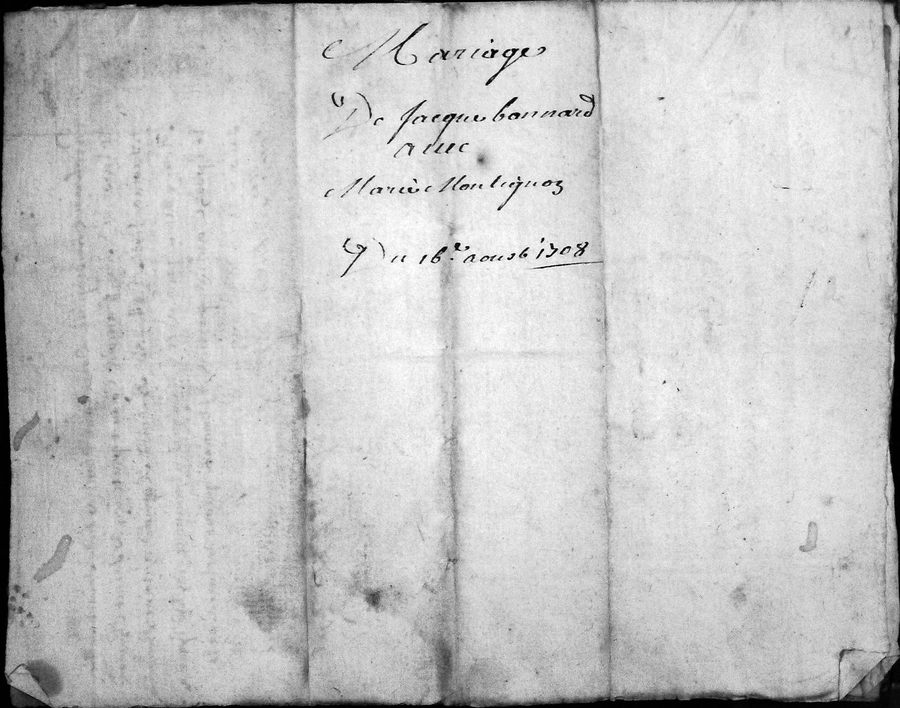 Mariage
De Jacque bonnard
auec
Marie Montignoz
Du 16.e aoust 1708